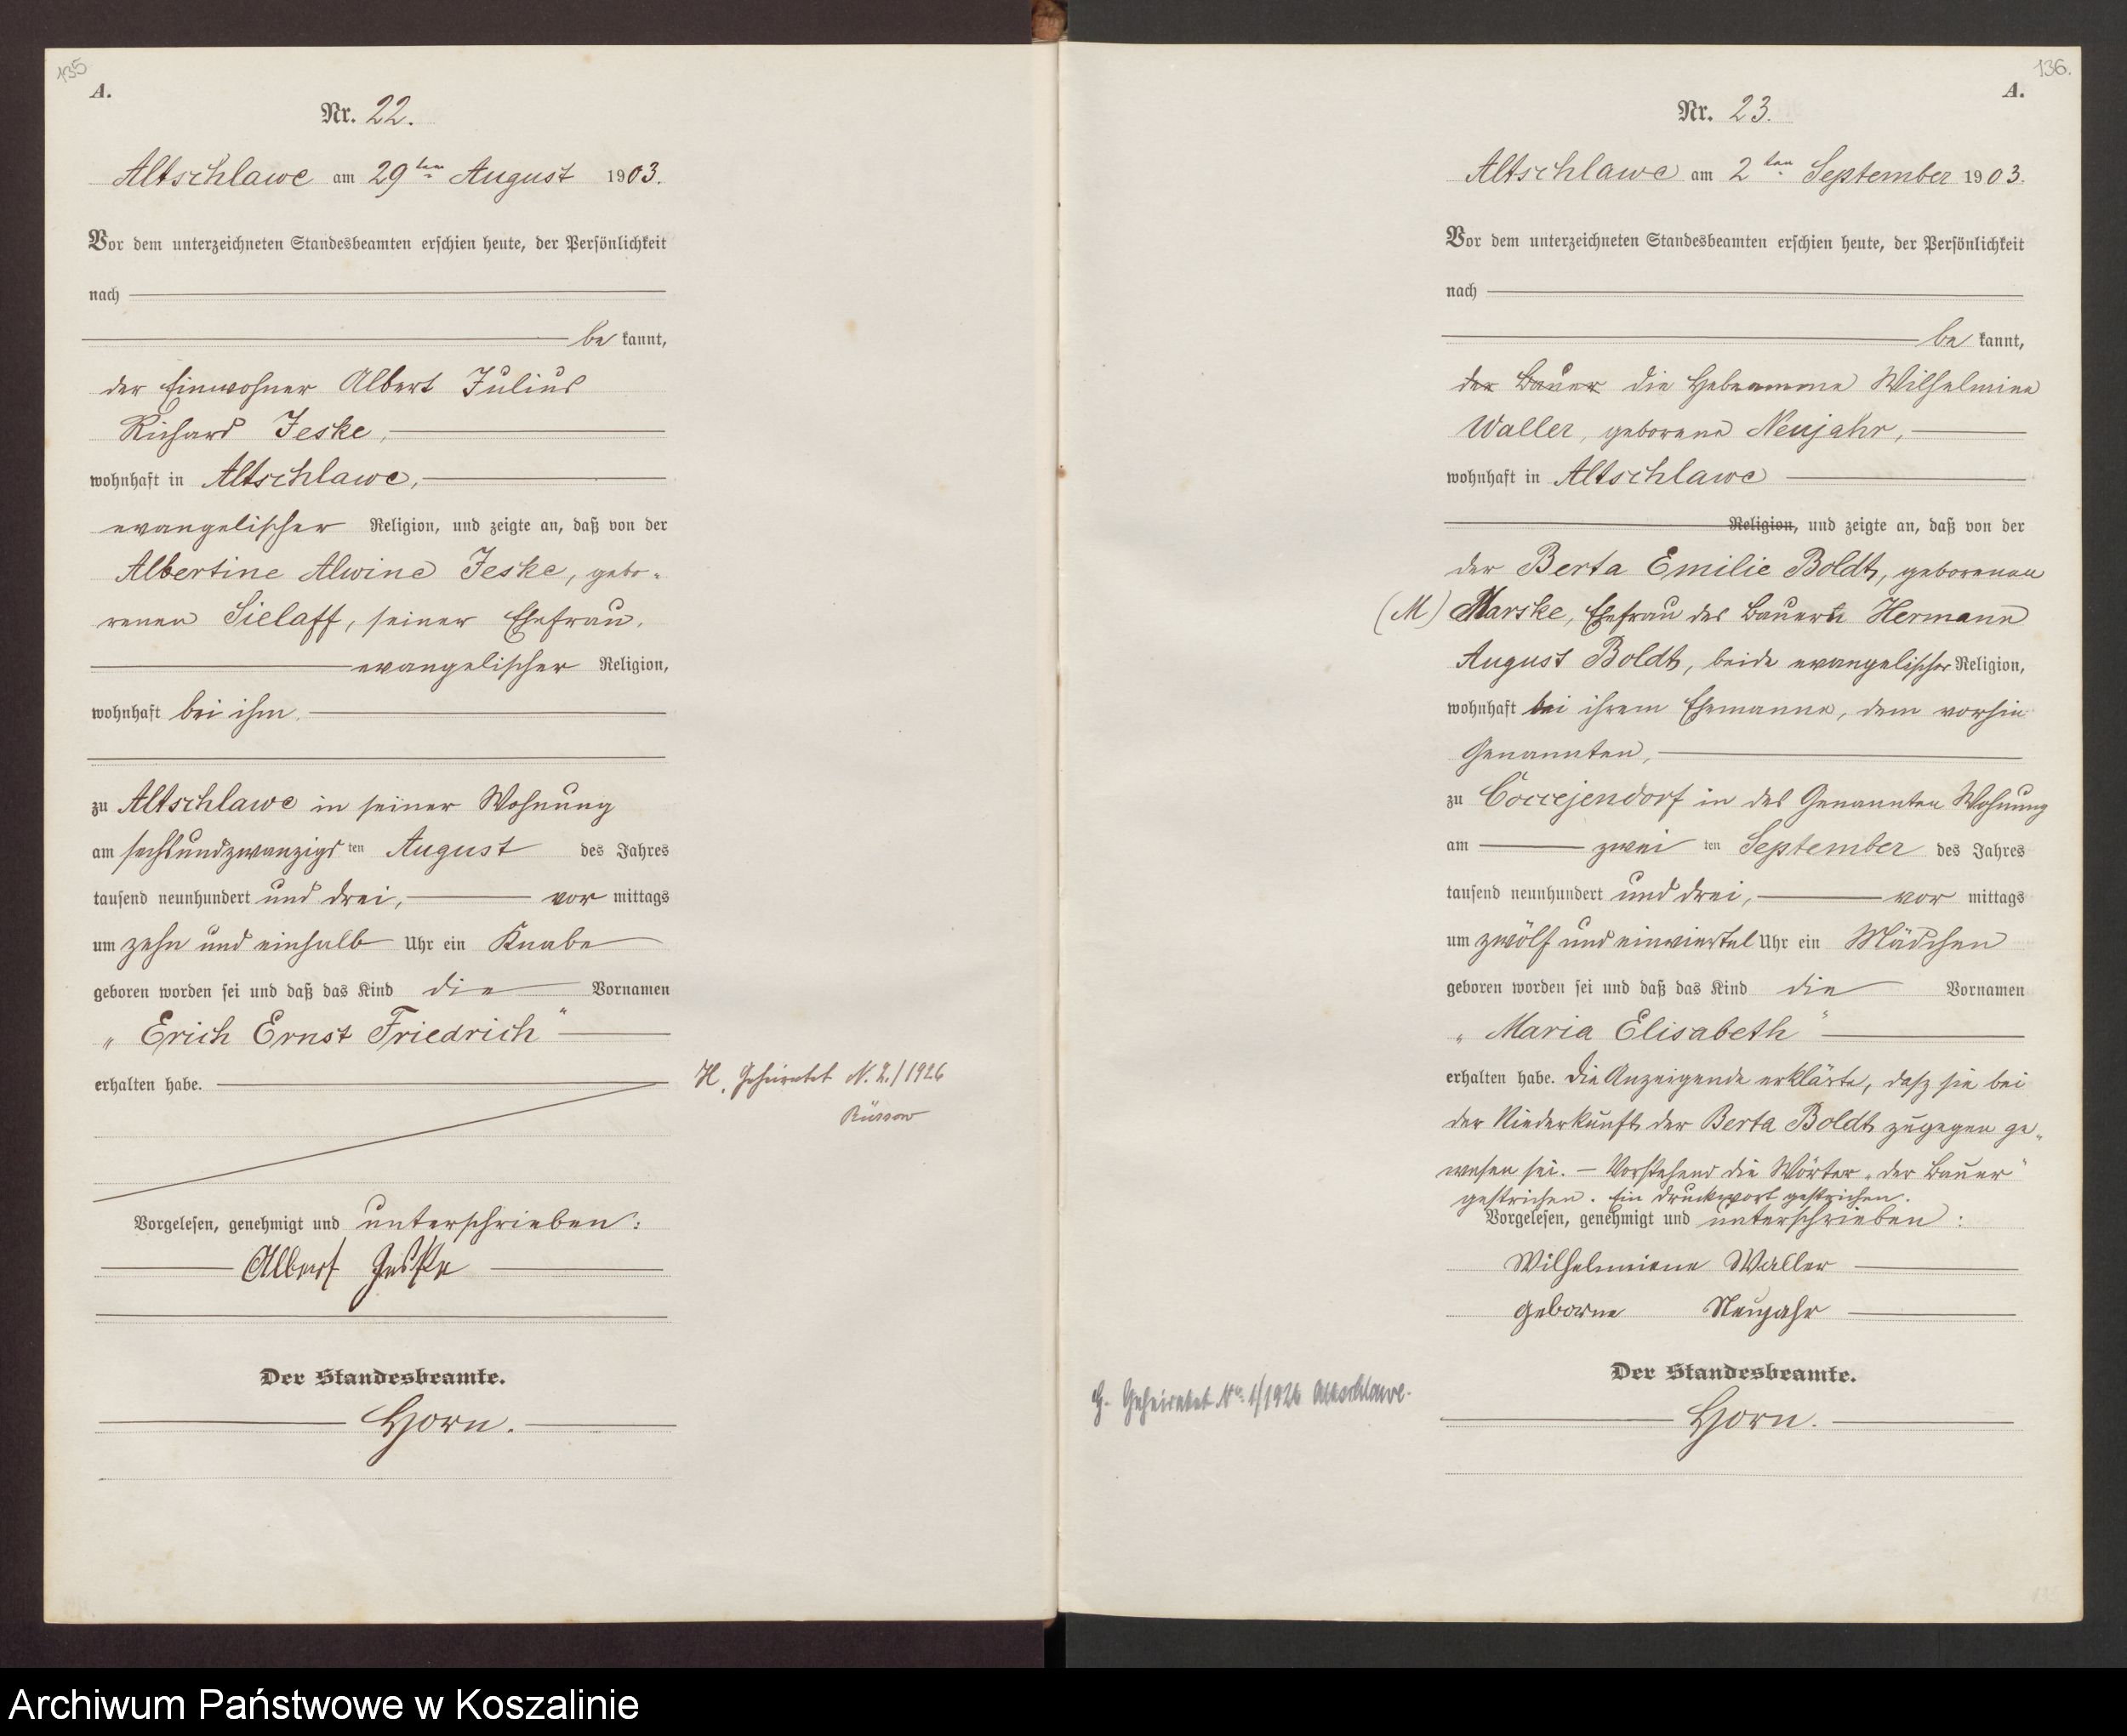 135
A.
Nr. 22.
Altschlawe am 29ten August 1903.
Vor dem unterzeichneten Standesbeamten erschien heute, der Persönlichkeit
nach
be kannt,
der Einwohner Albert Julius
Richard Jeske,
wohnhaft in Altschlawe,
evangelischer Religion, und zeigte an, daß von der
Albertine Alwine Jeske, gebo-
renen Sielaff, seiner Ehefrau,
evangelischer Religion,
wohnhaft bei ihm,
zu Altschlawe in seiner Wohnung
am sechsundzwanzigs ten August des Jahres
tausend neunhundert und drei, vor mittags
um zehn und einhalb Uhr ein Knabe
geboren worden sei und daß das Kind die Vornamen
„Erich Ernst Friedrich"
erhalten habe.
H. Geheiratet N. 2./1926
Rüssow
Vorgelesen, genehmigt und unterschrieben:
Albert Jeske
Der Standesbeamte.
Horn.
136.
A.
Nr. 23.
Altschlawe am 2ten September 1903.
Vor dem unterzeichneten Standesbeamten erschien heute, der Persönlichkeit
nach
be kannt,
der Bauer die Hebeamme Wilhelmine
Waller, geborene Neujahr,
wohnhaft in Altschlawe
Religion, und zeigte an, daß von der
der Berta Emilie Boldt, geborenen
(M) Marske, Ehefrau des Bauern Hermann
August Boldt, beide evangelischer Religion,
wohnhaft bei ihrem Ehemanne, dem vorhin
Genannten,
zu Coccejendorf in des Genannten Wohnung
am zwei ten September des Jahres
tausend neunhundert und drei, vor mittags
um zwölf und einviertel Uhr ein Mädchen
geboren worden sei und daß das Kind die Vornamen
„Maria Elisabeth"
erhalten habe. Die Anzeigende erklärte, dasz sie bei
der Niederkunft der Berta Boldt zugegen ge-
wesen sei. – Vorstehend die Wörter „der Bauer"
gestrichen. Ein Druckwort gestrichen.
Vorgelesen, genehmigt und unterschrieben:
Wilhelmiene Waller
geborne Neujahr
Der Standesbeamte.
G. Geheiratet No. 1/1926 Altschlawe.
Horn.
Archiwum Państwowe w Koszalinie